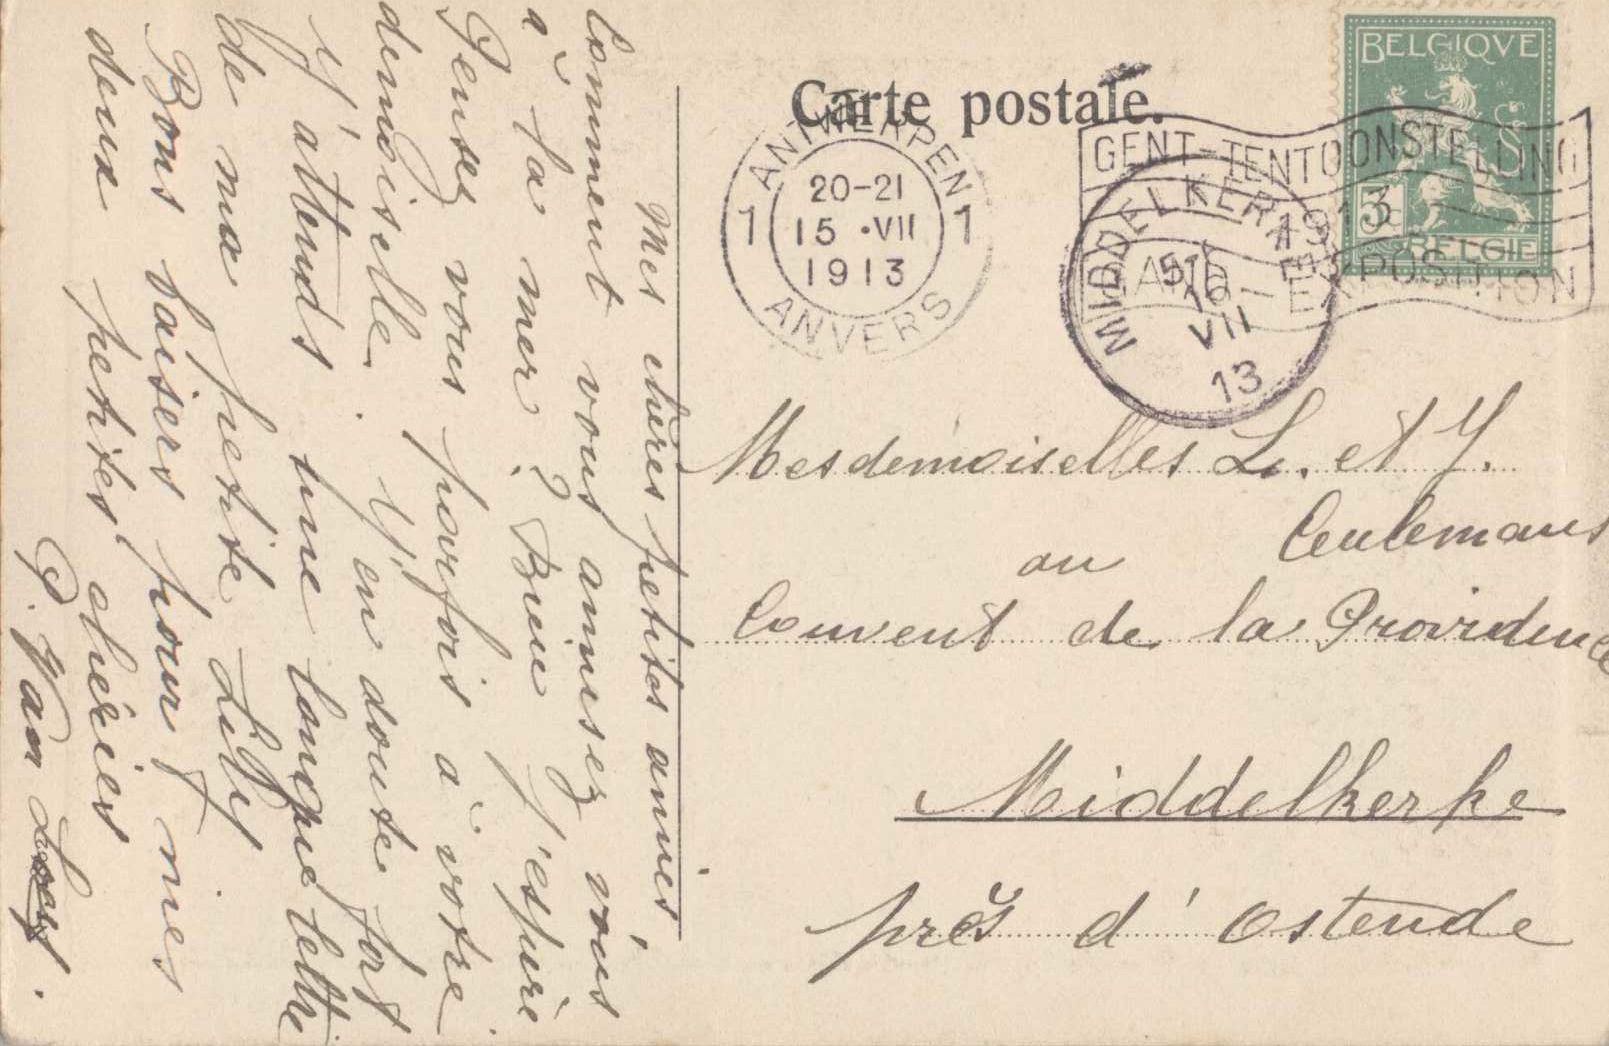 Carte postale.
BELGIQVE
5 c
BELGIE
ANTWERPEN
1 20-21 1
15 •VII
1913
ANVERS
GENT-TENTOONSTELLING
1913
GAND-EXPOSITION
MIDDELKERKE
VII
13
Mes chères petites amies
Comment vous amusez vous
à la mer? Bien j'espère
Pensez vous parfois à votre
demoiselle. J'en doute fort
J'attends une longue lettre
de ma petite Lily
Bons baisers pour mes
deux petites chéries
P. Van
Mesdemoiselles L. et Y.
Ceulemans
au
Couvent de la Providence
Middelkerke
près d'Ostende